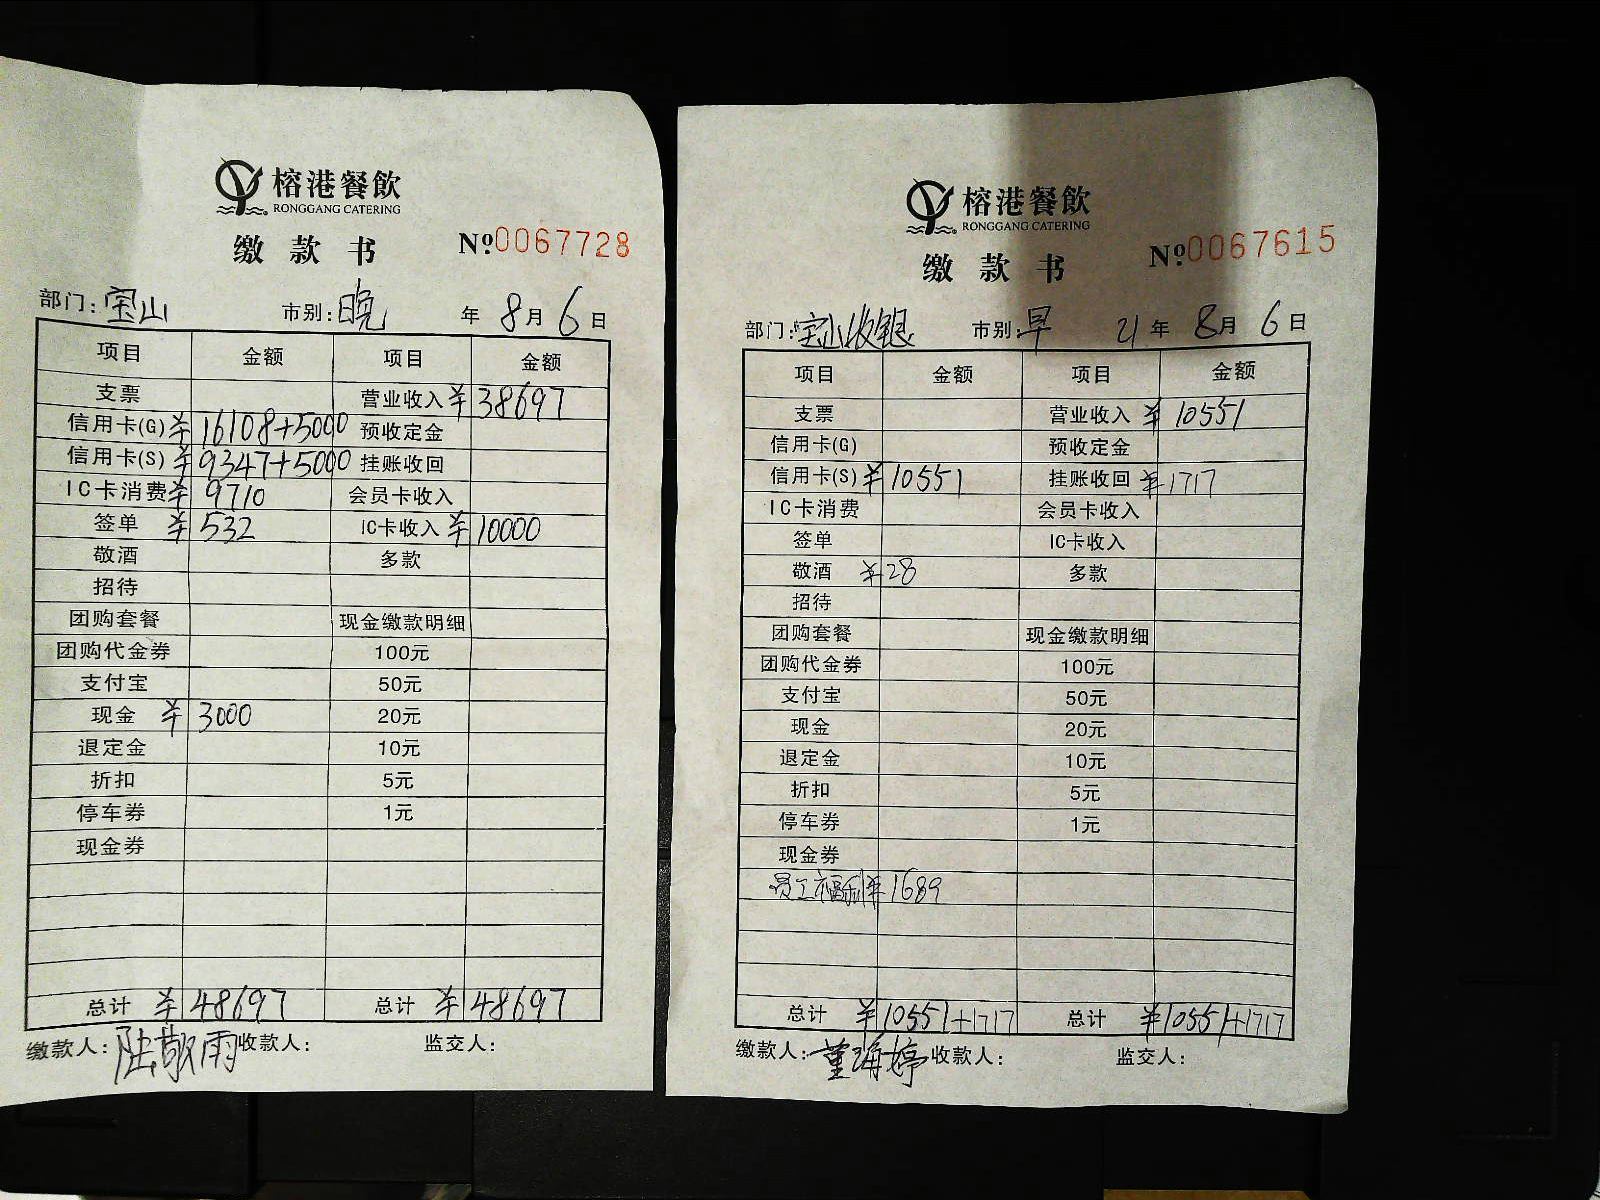 榕港餐飲
RONGGANG CATERING
缴款书 №0067728
部门:宝山 市别:晚 年8月6日
项目 金额 项目 金额
支票 营业收入 ¥38697
信用卡(G) ¥16108+5000 预收定金
信用卡(S) ¥9347+5000 挂账收回
IC卡消费 ¥9710 会员卡收入
签单 ¥532 IC卡收入 ¥10000
敬酒 多款
招待
团购套餐 现金缴款明细
团购代金券 100元
支付宝 50元
现金 ¥3000 20元
退定金 10元
折扣 5元
停车券 1元
现金券
总计 ¥48697 总计 ¥48697
缴款人:陆敬雨 收款人: 监交人:
榕港餐飲
RONGGANG CATERING
缴款书 №0067615
部门:宝山收银 市别:早 21年8月6日
项目 金额 项目 金额
支票 营业收入 ¥10551
信用卡(G) 预收定金
信用卡(S) ¥10551 挂账收回 ¥1717
IC卡消费 会员卡收入
签单 IC卡收入
敬酒 ¥28 多款
招待
团购套餐 现金缴款明细
团购代金券 100元
支付宝 50元
现金 20元
退定金 10元
折扣 5元
停车券 1元
现金券
员工福利 ¥1689
总计 ¥10551+1717 总计 ¥10551+1717
缴款人:董海婷 收款人: 监交人: